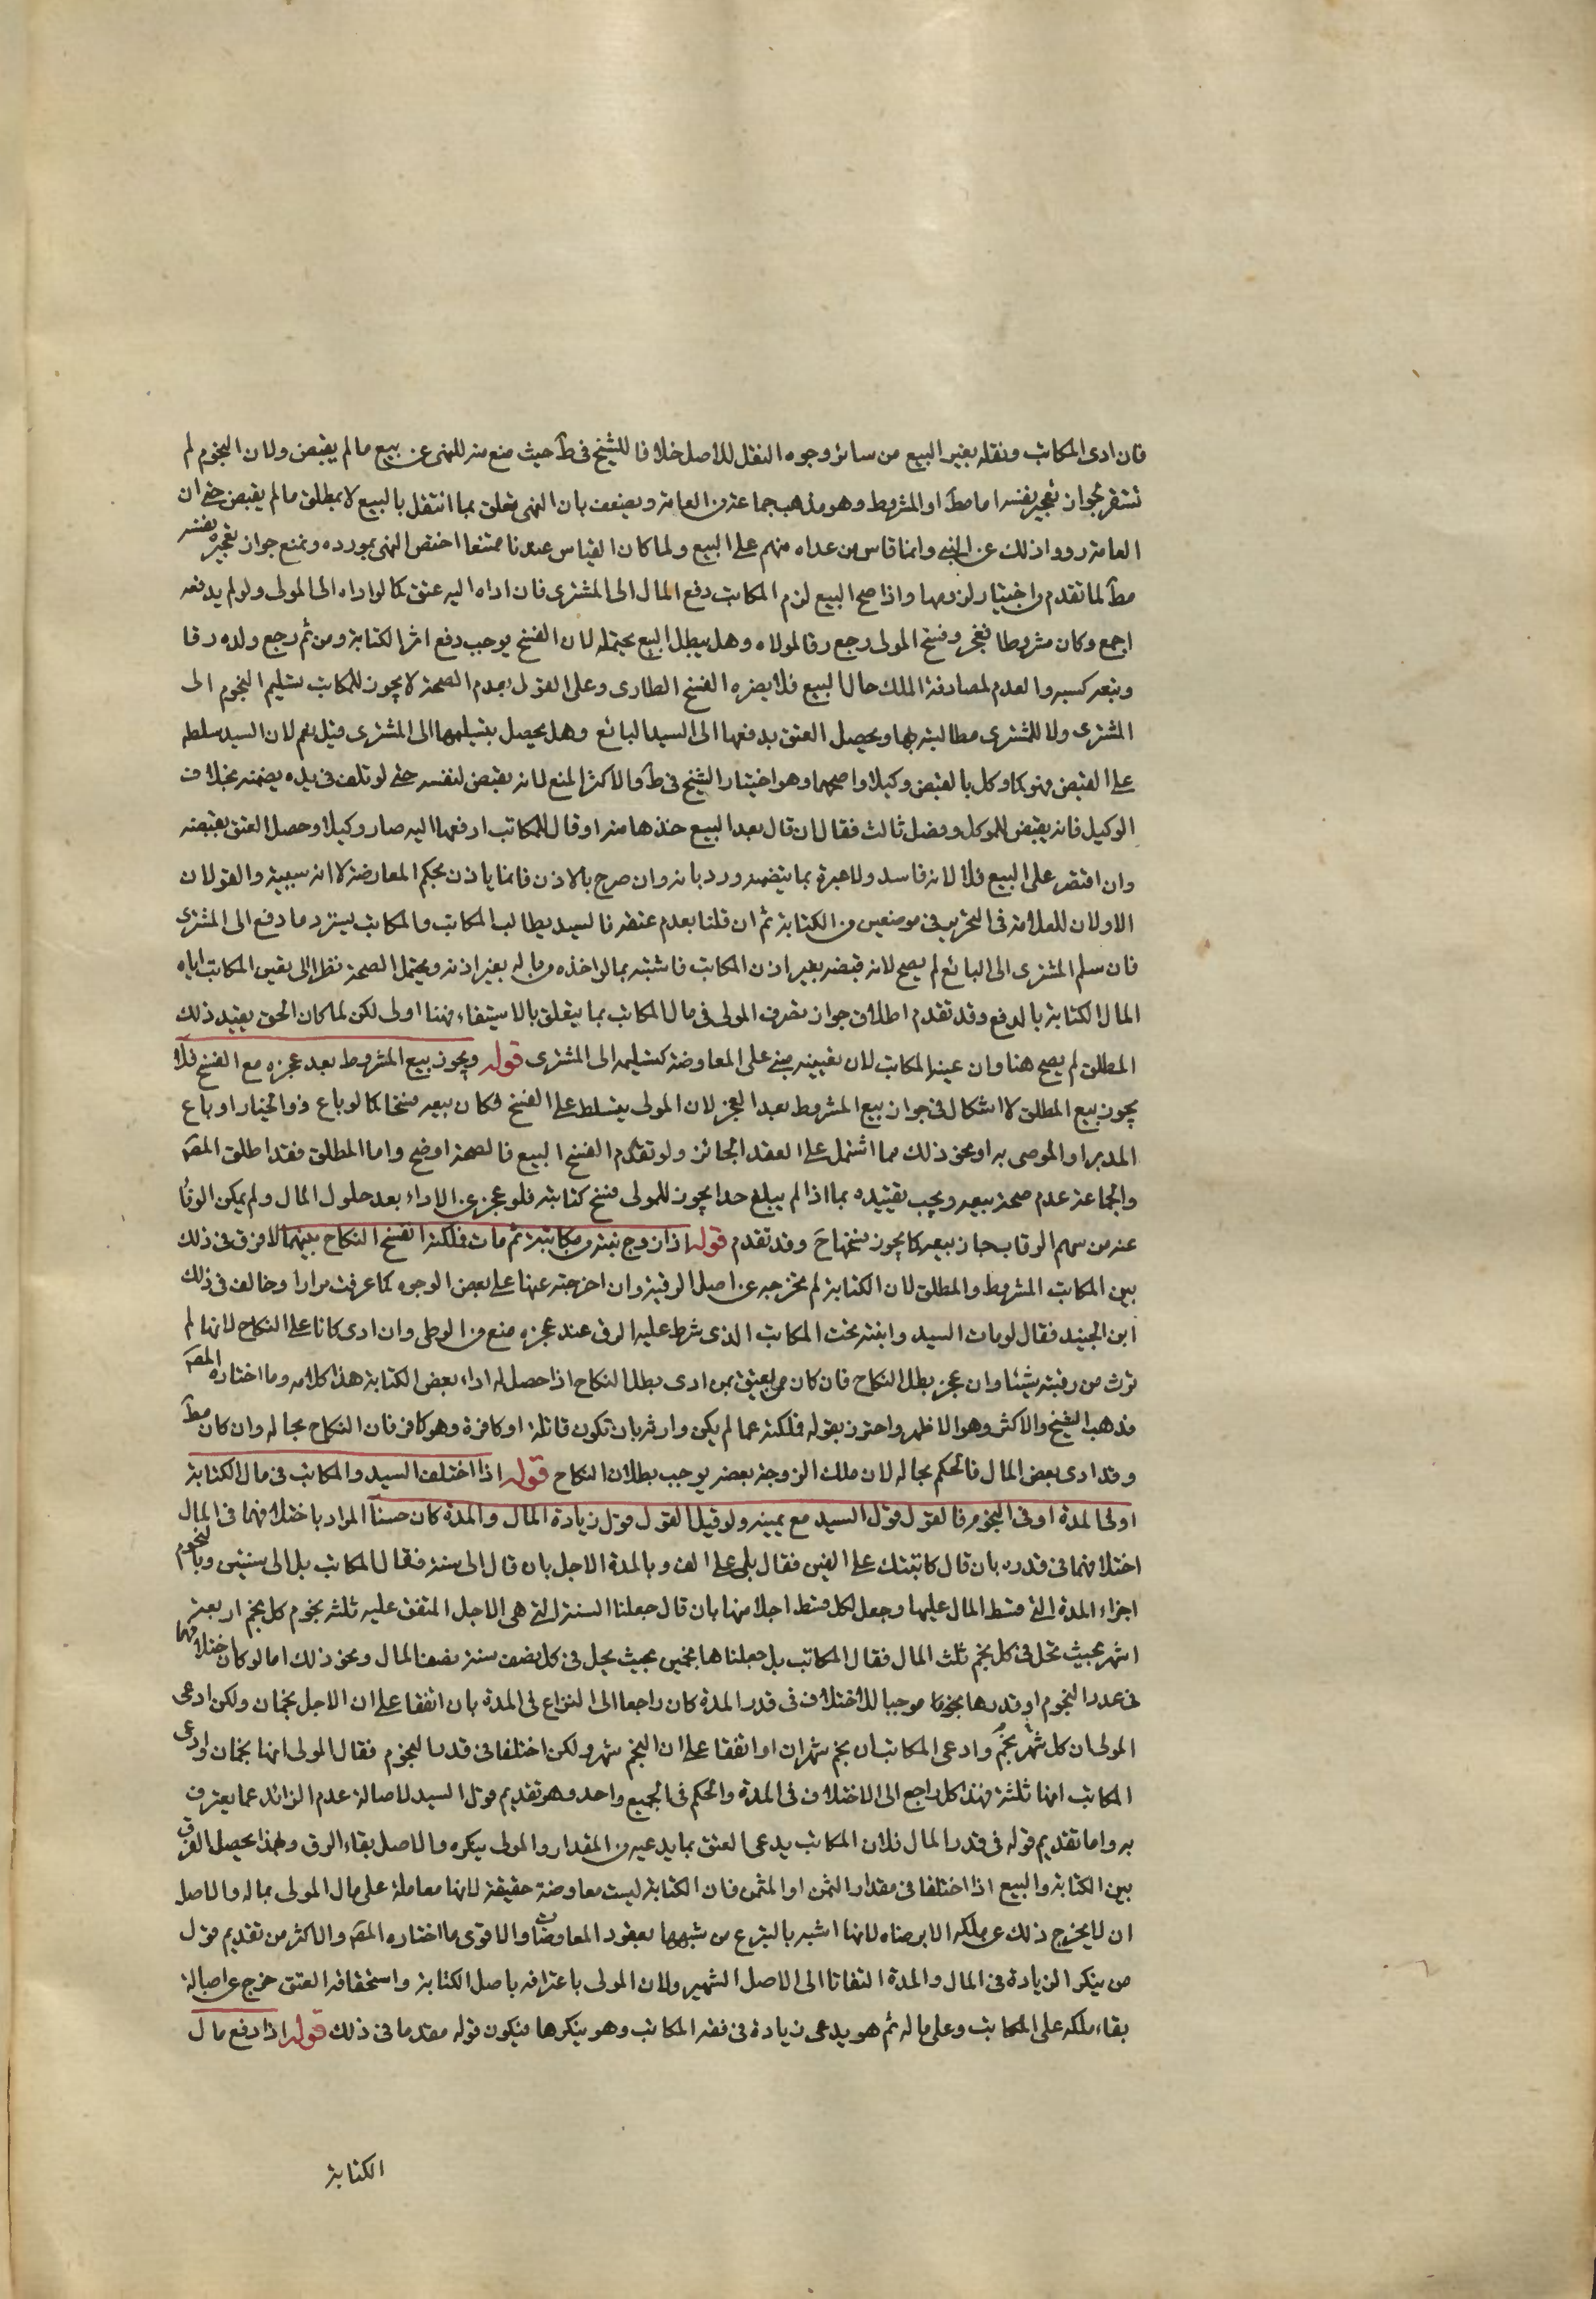 فان ادى المكاتب ونقله بغير البيع من سائر وجوه النقل للاصل خلافا للشيخ فى ط حيث منع منه للنهى عن بيع ما لم يقبض ولان النجوم لم
تستقر لجوان تعجيز نفسه اما مط او المشروط وهو مذهب جماعة من العامة ويضعف بان النهى يتعلق بما انتقل بالبيع لا بمطلق ما لم يقبض حتى ان
العامة رووا ذلك عن النبى وانما قاس من عداه منهم على البيع ولما كان القياس عندنا ممتنعا اختص النهى بمورده ونمنع جواز تعجيزه نفسه
مط لما تقدم من اختيار لزومها واذا صح البيع لزم المكاتب دفع المال الى المشترى فان اداه اليه عتق كما لو اداه الى المولى ولو لم يدفعه
اجمع وكان مشروطا فعجز وفسخ المولى رجع رقا لمولاه وهل يبطل البيع يحتمله لان الفسخ يوجب دفع اثر الكتابة ومن ثم رجع ولده رقا
وتبعه كسبه والعدم لمصادفة الملك حال البيع فلا يضره الفسخ الطارى وعلى القول بعدم الصحة لا يجوز للمكاتب تسليم النجوم الى
المشترى ولا للمشترى مطالبته بها ويحصل العتق بدفعها الى السيد البائع وهل يحصل بتسليمها الى المشترى قيل نعم لان السيد سلطه
على القبض فهو كما وكل بالقبض وكيلا واصحهما وهو اختيار الشيخ فى ط والاكثر المنع لانه يقبض لنفسه حتى لو تلف فى يده يضمنه بخلاف
الوكيل فانه يقبض للموكل وفصل ثالث فقال ان قال بعد البيع خذها منه او قال للمكاتب ادفعها اليه صار وكيلا وحصل العتق بقبضه
وان اقتصر على البيع فلا لانه فاسد ولا عبرة بما يتضمنه ورد بانه وان صرح بالاذن فانما ياذن بحكم المعاوضة لا انه يستنيبه والقولان
الاولان للعلامة فى التحرير فى موضعين من الكتابة ثم ان قلنا بعدم عتقه فالسيد يطالب المكاتب والمكاتب يسترد ما دفع الى المشترى
فان سلم المشترى الى البائع لم يصح لانه قبضه بغير اذن المكاتب فاشبه بما لو اخذه من ماله بغير اذنه ويحتمل الصحة نظرا الى تعين المكاتب اياه
المال الكتابة بالدفع وقد تقدم اطلاق جواز تصرف المولى فى مال المكاتب بما يتعلق بالاستيفاء فهنا اولى لكن لما كان الحق تقييد ذلك
المطلق لم يصح هنا وان عينه المكاتب لان تعيينه مبنى على المعاوضة كتسليمه الى المشترى قوله ويجوز بيع المشروط بعد عجزه مع الفسخ فلا
يجوز بيع المطلق لا اشكال فى جواز بيع المشروط بعد العجز لان المولى يتسلط على الفسخ فكان بيعه فسخا كما لو باع ذو الخيار او باع
المدبر او الموصى به او نحو ذلك مما اشتمل على العقد الجائز ولو تقدم الفسخ البيع فالصحة اوضح واما المطلق فقد اطلق المص
والجماعة عدم صحة بيعه ويجب تقييده بما اذا لم يبلغ حدا يجوز للمولى فسخ كتابته فلو عجز عن الاداء بعد حلول المال ولم يمكن الوفا
عنه من سهم الرقاب جاز بيعه كما يجوز فسخها ح وقد تقدم قوله اذا زوج بنته من مكاتبه ثم مات فملكته انفسخ النكاح بينهما لا فرق فى ذلك
بين المكاتب المشروط والمطلق لان الكتابة لم تخرجه عن اصل الرقية وان اخرجته عنها على بعض الوجوه كما عرفت مرارا وخالف فى ذلك
ابن الجنيد فقال لو مات السيد وابنته تحت المكاتب الذى شرط عليه الرق عند عجزه منع من الوطى وان ادى كانا على النكاح لانها لم
ترث من رقبته شيئا وان عجز بطل النكاح فان كان ممن يعتق بمن ادى بطل النكاح اذا حصل له اداء بعض الكتابة هذا كلامه وما اختاره المص
مذهب الشيخ والاكثر وهو الاظهر واحترز بقوله فملكته عما لم يكن وارثه بان تكون قاتلة او كافرة وهو كافر فان النكاح بحاله وان كان مط
وقد ادى بعض المال فالحكم بحاله لان ملك الزوجة بعضه يوجب بطلان النكاح قوله اذا اختلف السيد والمكاتب فى مال الكتابة
او فى المدة او فى النجوم فالقول قول السيد مع يمينه ولو قيل القول قول زيادة المال والمدة كان حسنا المراد باختلافهما فى المال
اختلافهما فى قدره بان قال كاتبتك على الفين فقال بلى على الف وبالمدة الاجل بان قال الى سنة فقال المكاتب بل الى سنتين وبالنجوم
اجزاء المدة التى قسط المال عليها وجعل لكل قسط اجلا منها بان قال جعلنا السنة التى هى الاجل المتفق عليه ثلثة نجوم كل نجم اربعة
اشهر بحيث تحل فى كل نجم ثلث المال فقال المكاتب بل جعلناها نجمين بحيث يحل فى كل نصف سنة نصف المال ونحو ذلك اما لو كان اختلافهما
فى عدد النجوم او قدرها نجوما موجبا للاختلاف فى قدر المدة كان راجعا الى النزاع فى المدة بان اتفقا على ان الاجل نجمان ولكن ادعى
المولى ان كل شهر نجم وادعى المكاتب ان نجم شهران او اتفقا على ان النجم شهر ولكن اختلفا فى قدر النجوم فقال المولى انها نجمان وادعى
المكاتب انها ثلثة فهذا كله راجع الى الاختلاف فى المدة والحكم فى الجميع واحد وهو تقديم قول السيد لاصالة عدم الزائد عما يعترف
به واما تقديم قوله فى قدر المال فلان المكاتب يدعى العتق بما يدعيه من المقدار والمولى ينكره والاصل بقاء الرق ولهذا يحصل الفرق
بين الكتابة والبيع اذا اختلفا فى مقدار الثمن او المثمن فان الكتابة ليست معاوضة حقيقة لانها معاملة على مال المولى بماله والاصل
ان لا يخرج ذلك عن ملكه الا برضاه لانها اشبه بالتبرع من شبهها بعقود المعاوضات والاقوى ما اختاره المص والاكثر من تقديم قول
من ينكر الزيادة فى المال والمدة التفاتا الى الاصل الشهير ولان المولى باعترافه باصل الكتابة واستحقاقه العتق خرج عن اصالة
بقاء ملكه على المكاتب وعلى ماله ثم هو يدعى زيادة فى ذمة المكاتب وهو ينكرها فيكون قوله مقدما فى ذلك قوله اذا دفع مال
الكتابة